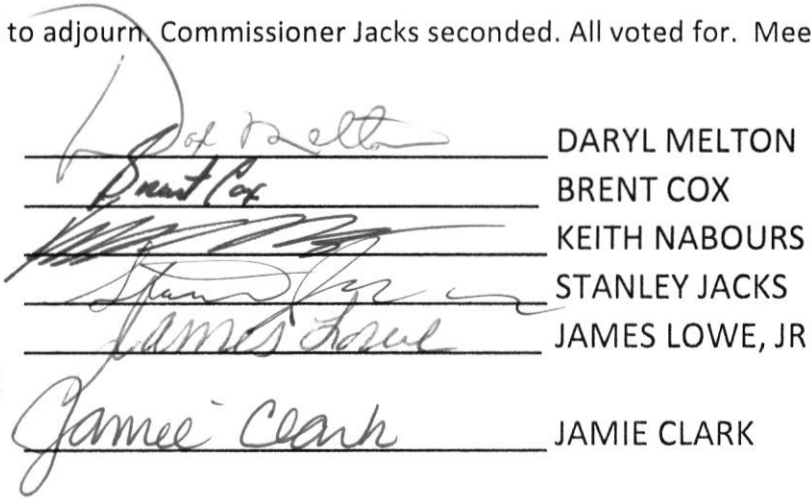 to adjourn. Commissioner Jacks seconded. All voted for. Mee
Melton DARYL MELTON
Brent Cox BRENT COX
KEITH NABOURS
STANLEY JACKS
James Lowe JAMES LOWE, JR
Jamie Clark JAMIE CLARK